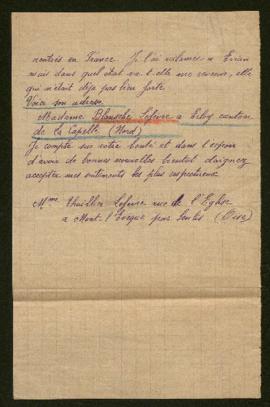 rentrés en France. Je l'ai réclamée à Evian
mais dans quel état va-t-elle me revenir, elle
qui n'était déjà pas bien forte.
Voici son adresse
Madame Blanche Lefèvre à canton
de la Capelle (Nord)
Je compte sur votre bonté et dans l'espoir
d'avoir de bonnes nouvelles bientôt daignez
accepter mes sentiments les plus respectueux
Mme Lefèvre rue de l'Eglise
à Mont l'Evêque par Senlis (Oise)